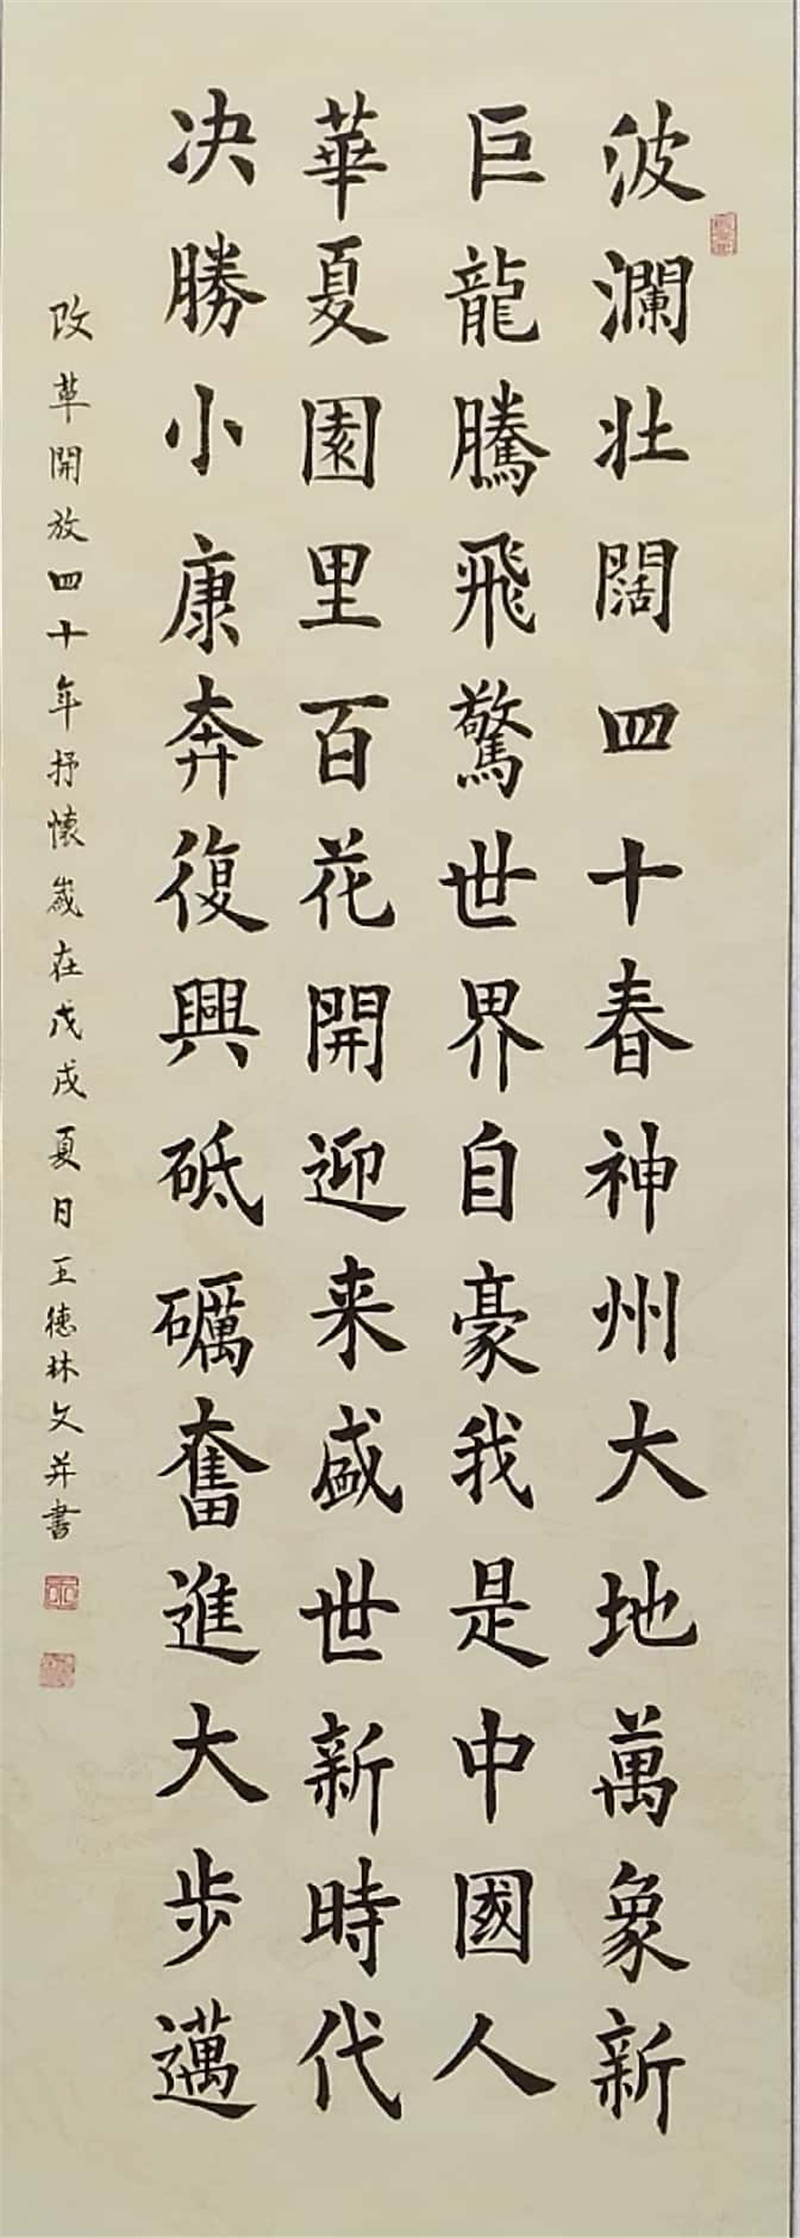 波瀾壯闊四十春神州大地萬象新
巨龍騰飛驚世界自豪我是中國人
華夏園里百花開迎来盛世新時代
决勝小康奔復興砥礪奮進大步邁
改革開放四十年抒懷歲在戊戌夏日王德林文并書